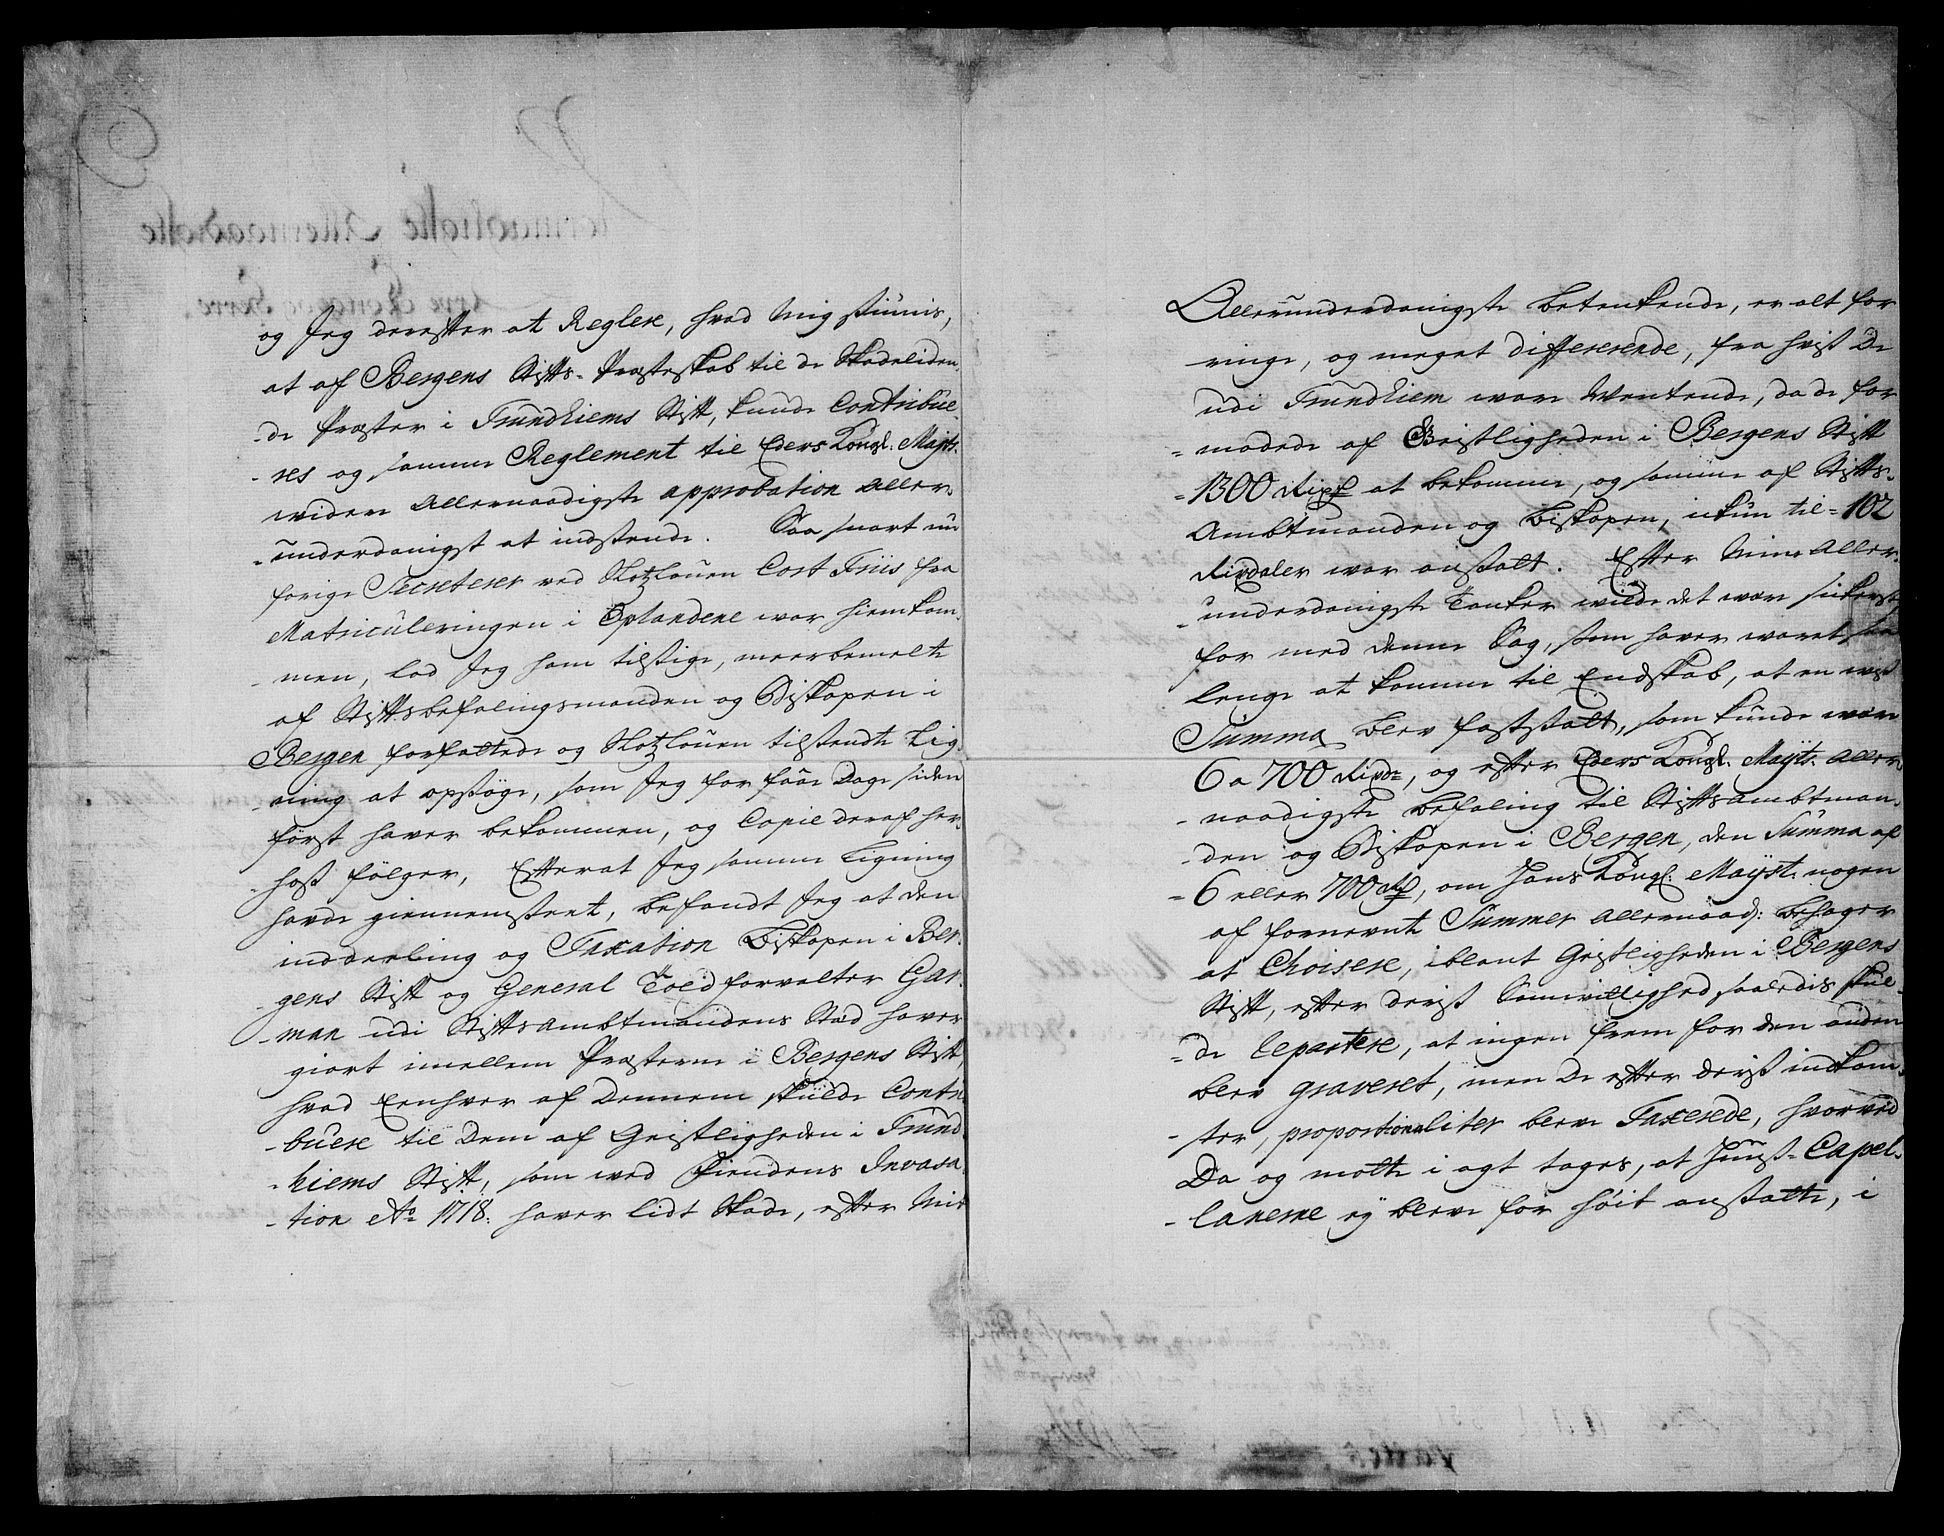 og Jeg derefter at Reglere, hvad Mig siunis,
at af Bergens Stifts-Præsteskab til de Skadeliden-
-de Præster i Trundhiems Stift, kunde Contribue-
-res og samme Reglement til Eders Kongl: Mayts.
widere Allernaadigste approbation Aller-
-underdanigst at indsende. Saa snart nu
forige Secreterer ved Slotzlouen Cort Friis fra
Matriculeringen i Oplandene war hiemkom-
-men, lod Jeg ham tilsige, meerbemelte
af Stiftsbefalingsmanden og Biskopen i
Bergen forfattede og Slotzlouen tilsendte Lig-
-ning at opsøge, som Jeg for faae Dage siden
først haver bekommen, og Copie deraf her-
-hoß følger, Efterat Jeg samme Ligning
hafde giennemseet, befandt Jeg at den
inddeeling og Taxation Biskopen i Ber-
-gens Stift og General Toldforvalter Gar-
-man udi Stiftsambtmandens Stæd haver
giort imellem Præsterne i Bergens Stift,
hvad Eenhver af Dennem skulde Contri-
-buere til Dem af Geistligheden i Trund-
-hiems Stift, som ved Fiendens Invasa-
-tion Ao 1718: haver lidt Skade, efter Mit
Allerunderdanigste betenkende, er alt for
ringe, og meget differerende, fra hvist De
udi Trundhiem ware Wentende, da de for
-modede af Geistligheden i Bergens Stift
-1300 Rixd at bekomme, og samme af Stifts-
Ambtmanden og Biskopen, ikun til 102
Rixdaler war ansatt. Efter Mine Aller-
-underdanigste Tanker wilde det være sikkerst,
for med denne Sag, som haver waret saa
lenge at komme til Endskab, at en wis
Summa blev fastsatt, som kunde være
6 a 700 Rixdr, og efter Eders Kongl. Mayts. Aller-
-naadigste befaling til Stiftsambtman-
-den og Biskopen i Bergen, den Summa af
-6 eller 700 Rd, om Hans Kongl. Mayst. nogen
af fornevnte Summer Allernaad: behager
at Choisere, iblant Geistligheden i Bergens
Stift, efter deriß Samvillighed saaledis skul-
-de repartere, at ingen frem for den anden
blev graveret, men De efter deriß indkom-
-ster, proportionaliter blev Taxerede, hvorved
Da og motte i agt tages, at Huuß-Capel-
-lanerne ey bleve for høit ansatte, i